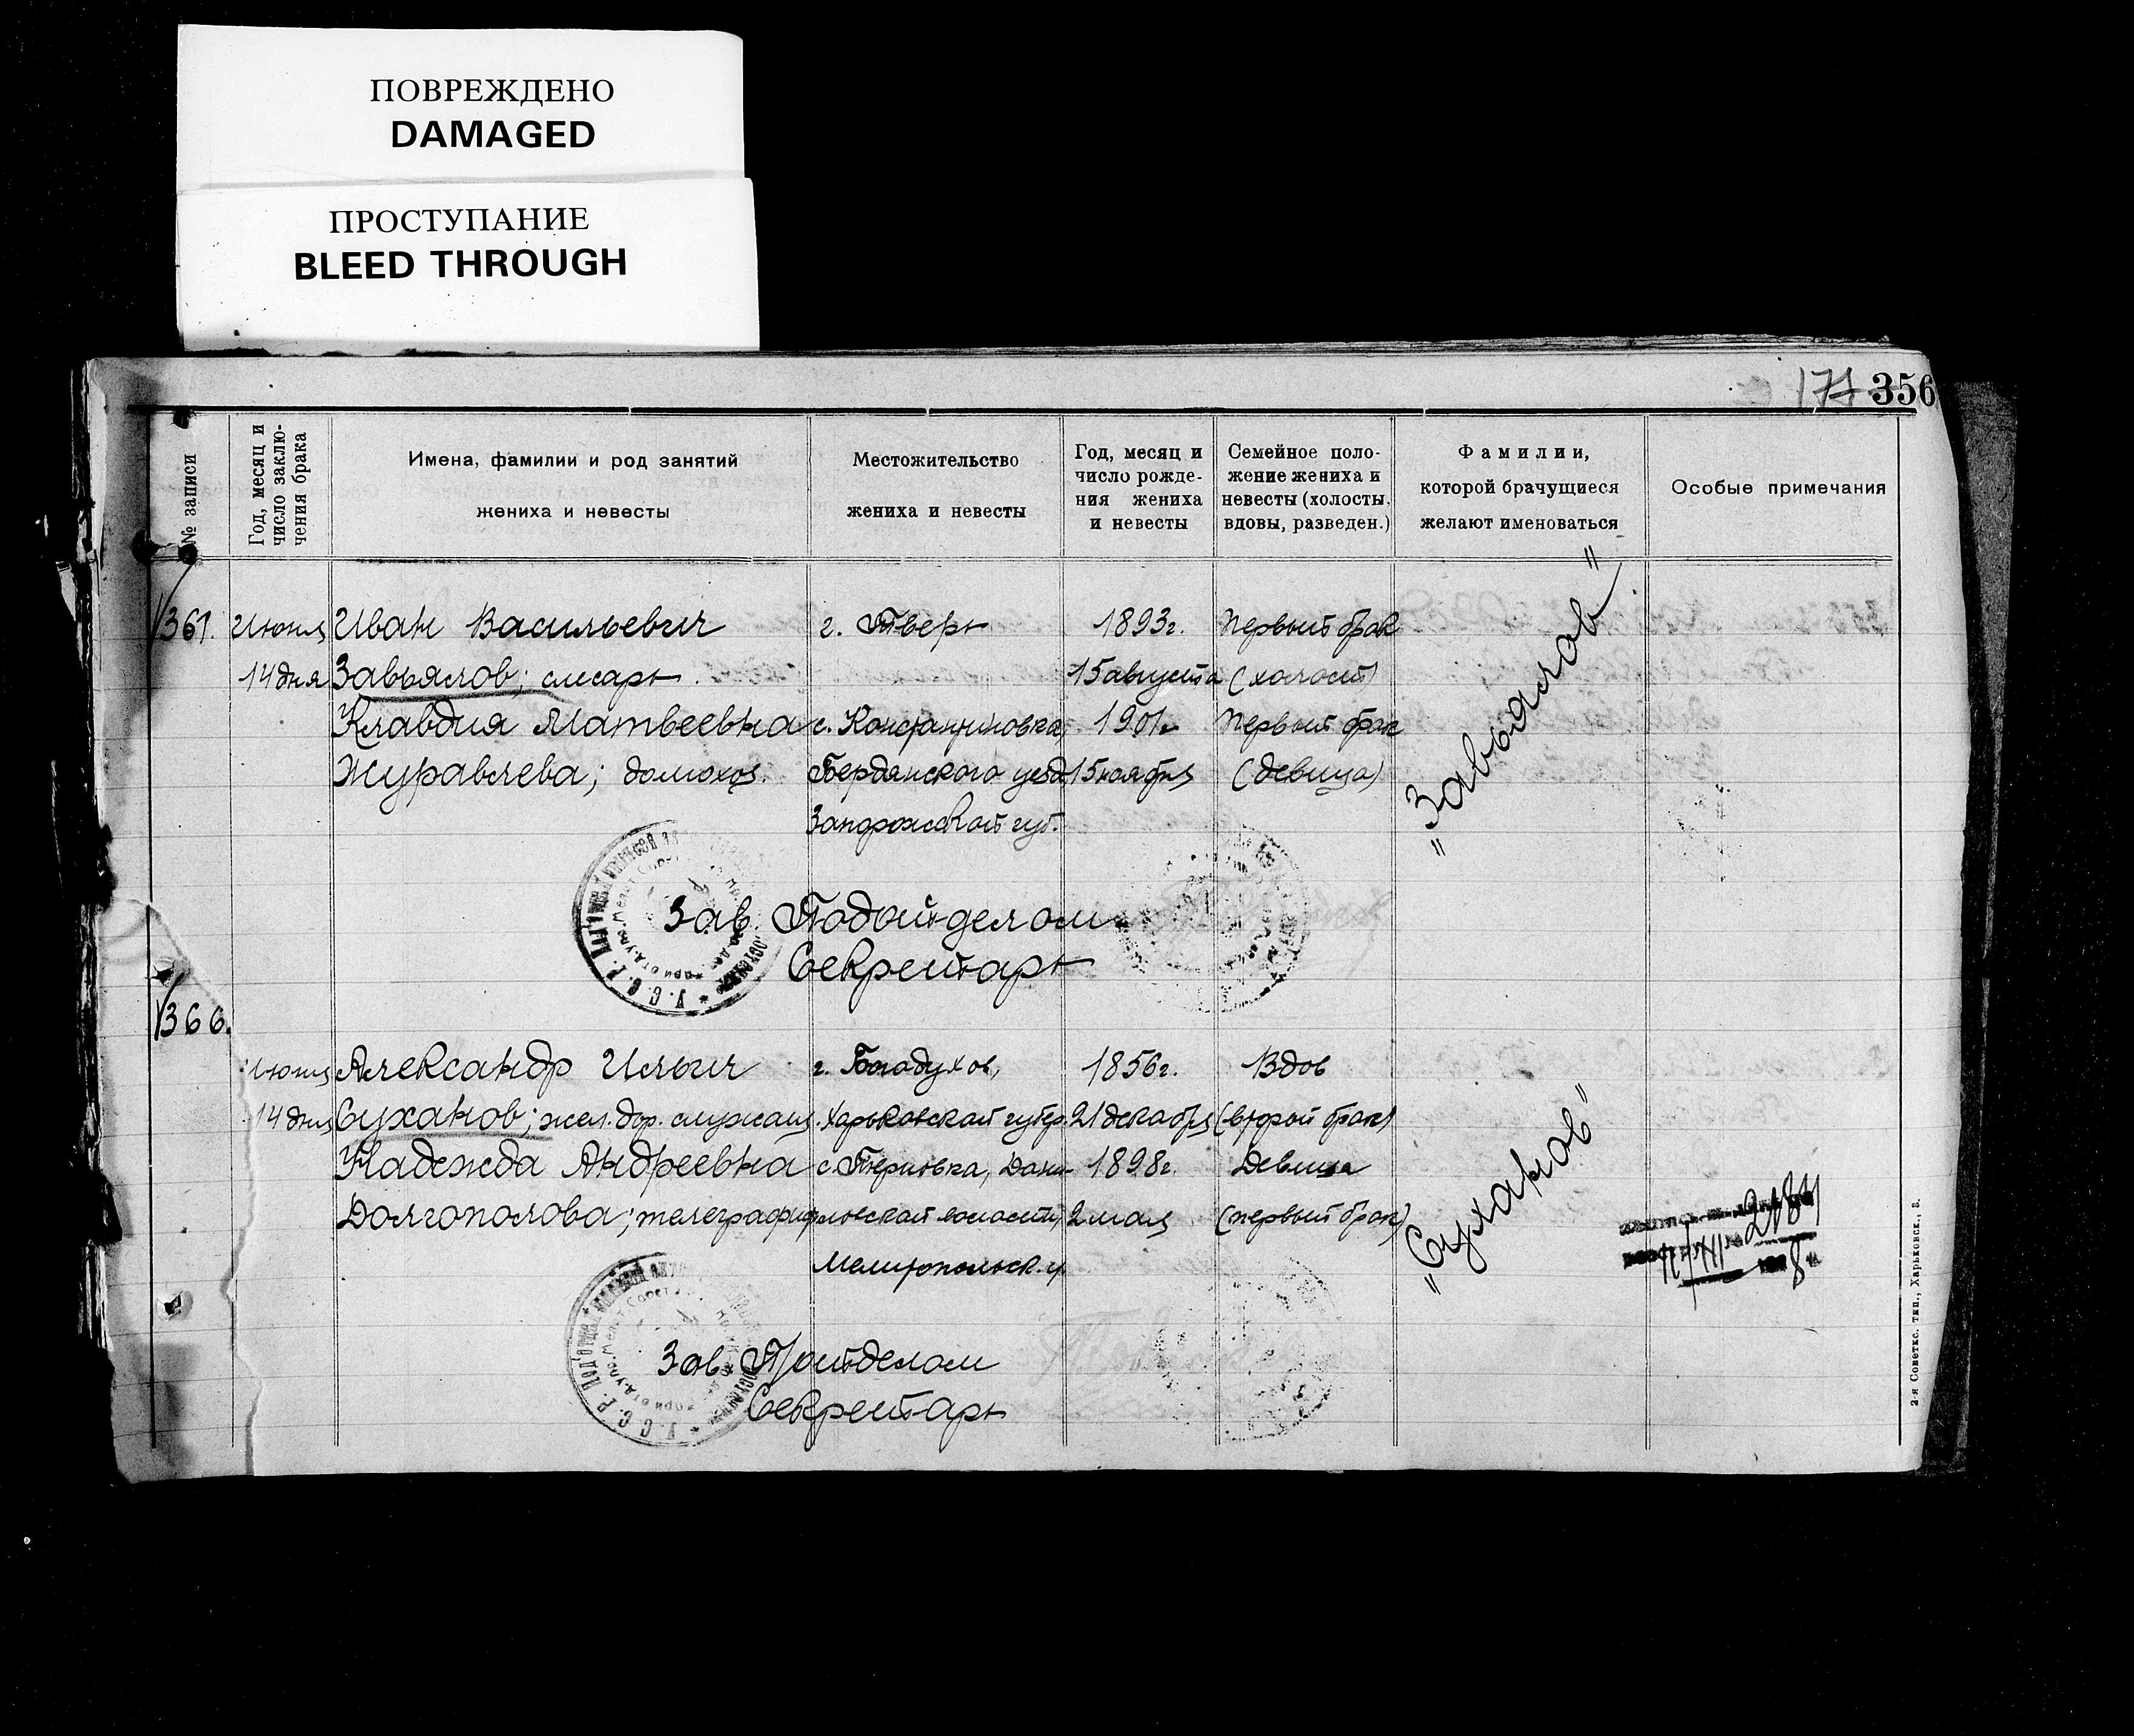 ПОВРЕЖДЕНО
DAMAGED
ПРОСТУПАНИЕ
BLEED THROUGH
174 356
№ записи
Год, месяц и
число заклю-
чения брака
Имена, фамилии и род занятий
жениха и невесты
Местожительство
жениха и невесты
Год, месяц и
число рожде-
ния жениха
и невесты
Семейное поло-
жение жениха и
невесты (холосты,
вдовы, разведен.)
Фамилии,
которой брачущиеся
желают именоваться
Особые примечания
361. Июня Иван Васильевич г. Тверь 1893г. Первый брак
14 дня Завьялов; слесарь. 15 августа (холост)
Клавдия Матвеевна с. Константиновка, 1901г Первый брак
Журавлева; домохоз. Бердянского уезд. 15 ноября (девица)
Запорожской губ.
"Завьялов"
Зав. Подотделом
Секретарь
366.
Июня Александр Ильич г. Богодухов, 1856г. Вдов
14 дня Суханов; жел. дор. служащ. Харьковской губер. 21 декабря (второй брак)
Надежда Андреевна с. Терновка, Дани- 1898г. Девица
Долгополова; телеграфис ловской волости, 2 мая (первый брак)
Мелитопольск. у.
"Суханов"
2184
Зав. П/отделом
Секретарь
У.С.С.Р.
У.С.С.Р.
2-я Советск. тип., Харьковск., 8.